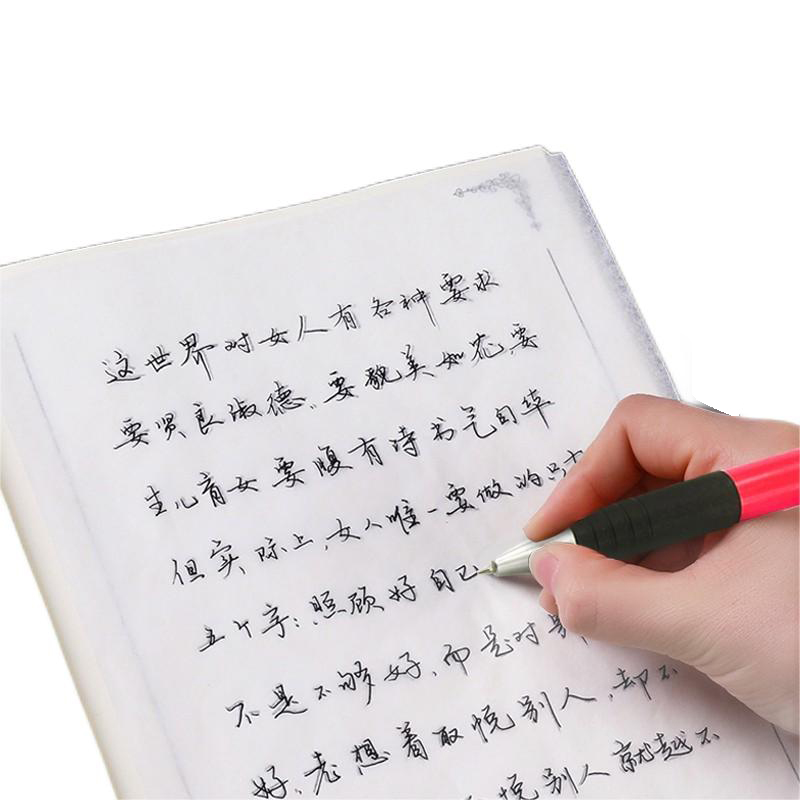 这世界对女人有各种要求
要贤良淑德、要貌美如花、要
生儿育女要腹有诗书气自华
但实际上,女人唯一要做的只有
五个字:照顾好自己
不是不够好,而是对
好,老想着取悦别人,却不
悦别人就越不